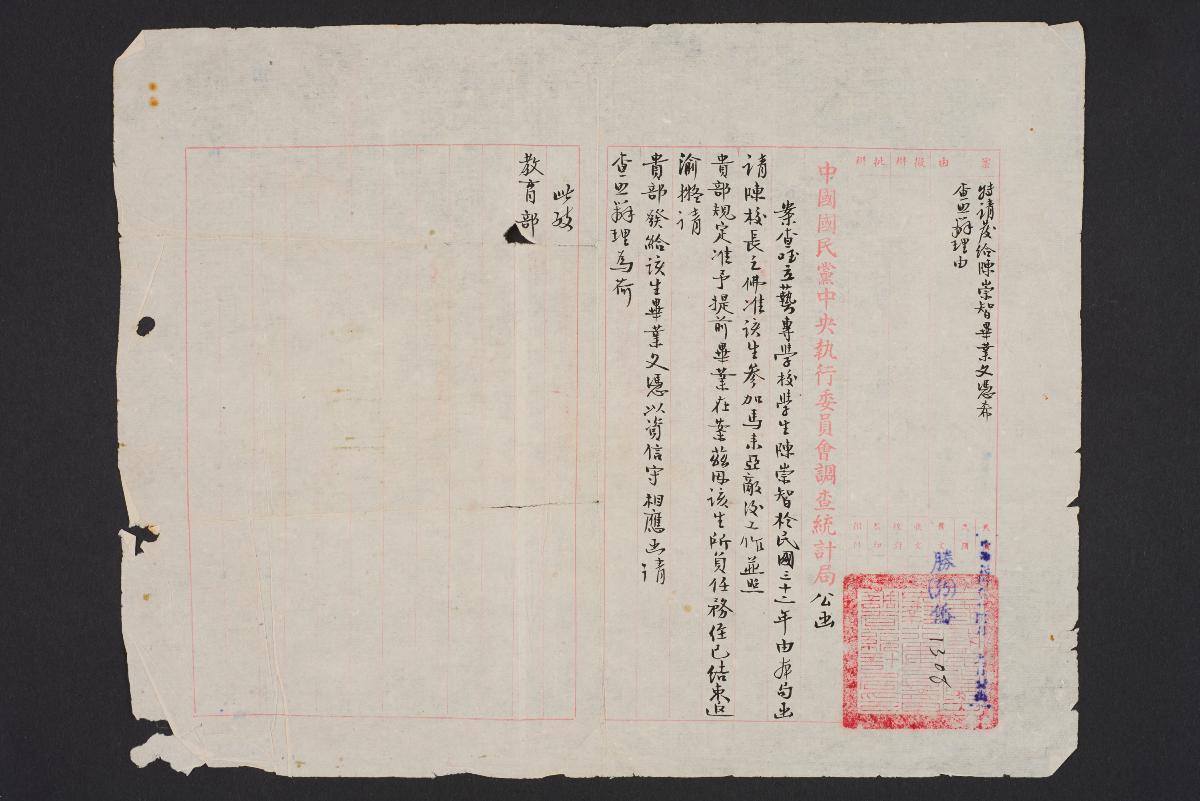 案由
擬辦
批辦
特請發給陳崇智畢業文憑希
查照辦理由
勝(
1308
中國國民黨中央執行委員會調查統計局公函
案查國立藝專學校學生陳崇智於民國三十二年由本局函
請陳校長之佛准該生參加馬來亞敵後工作並照
貴部規定准予提前畢業在案茲因該生所負任務任已結束迫
渝擬請
貴部發給該生畢業文憑以資信守相應函請
查照辦理為荷
此致
教育部